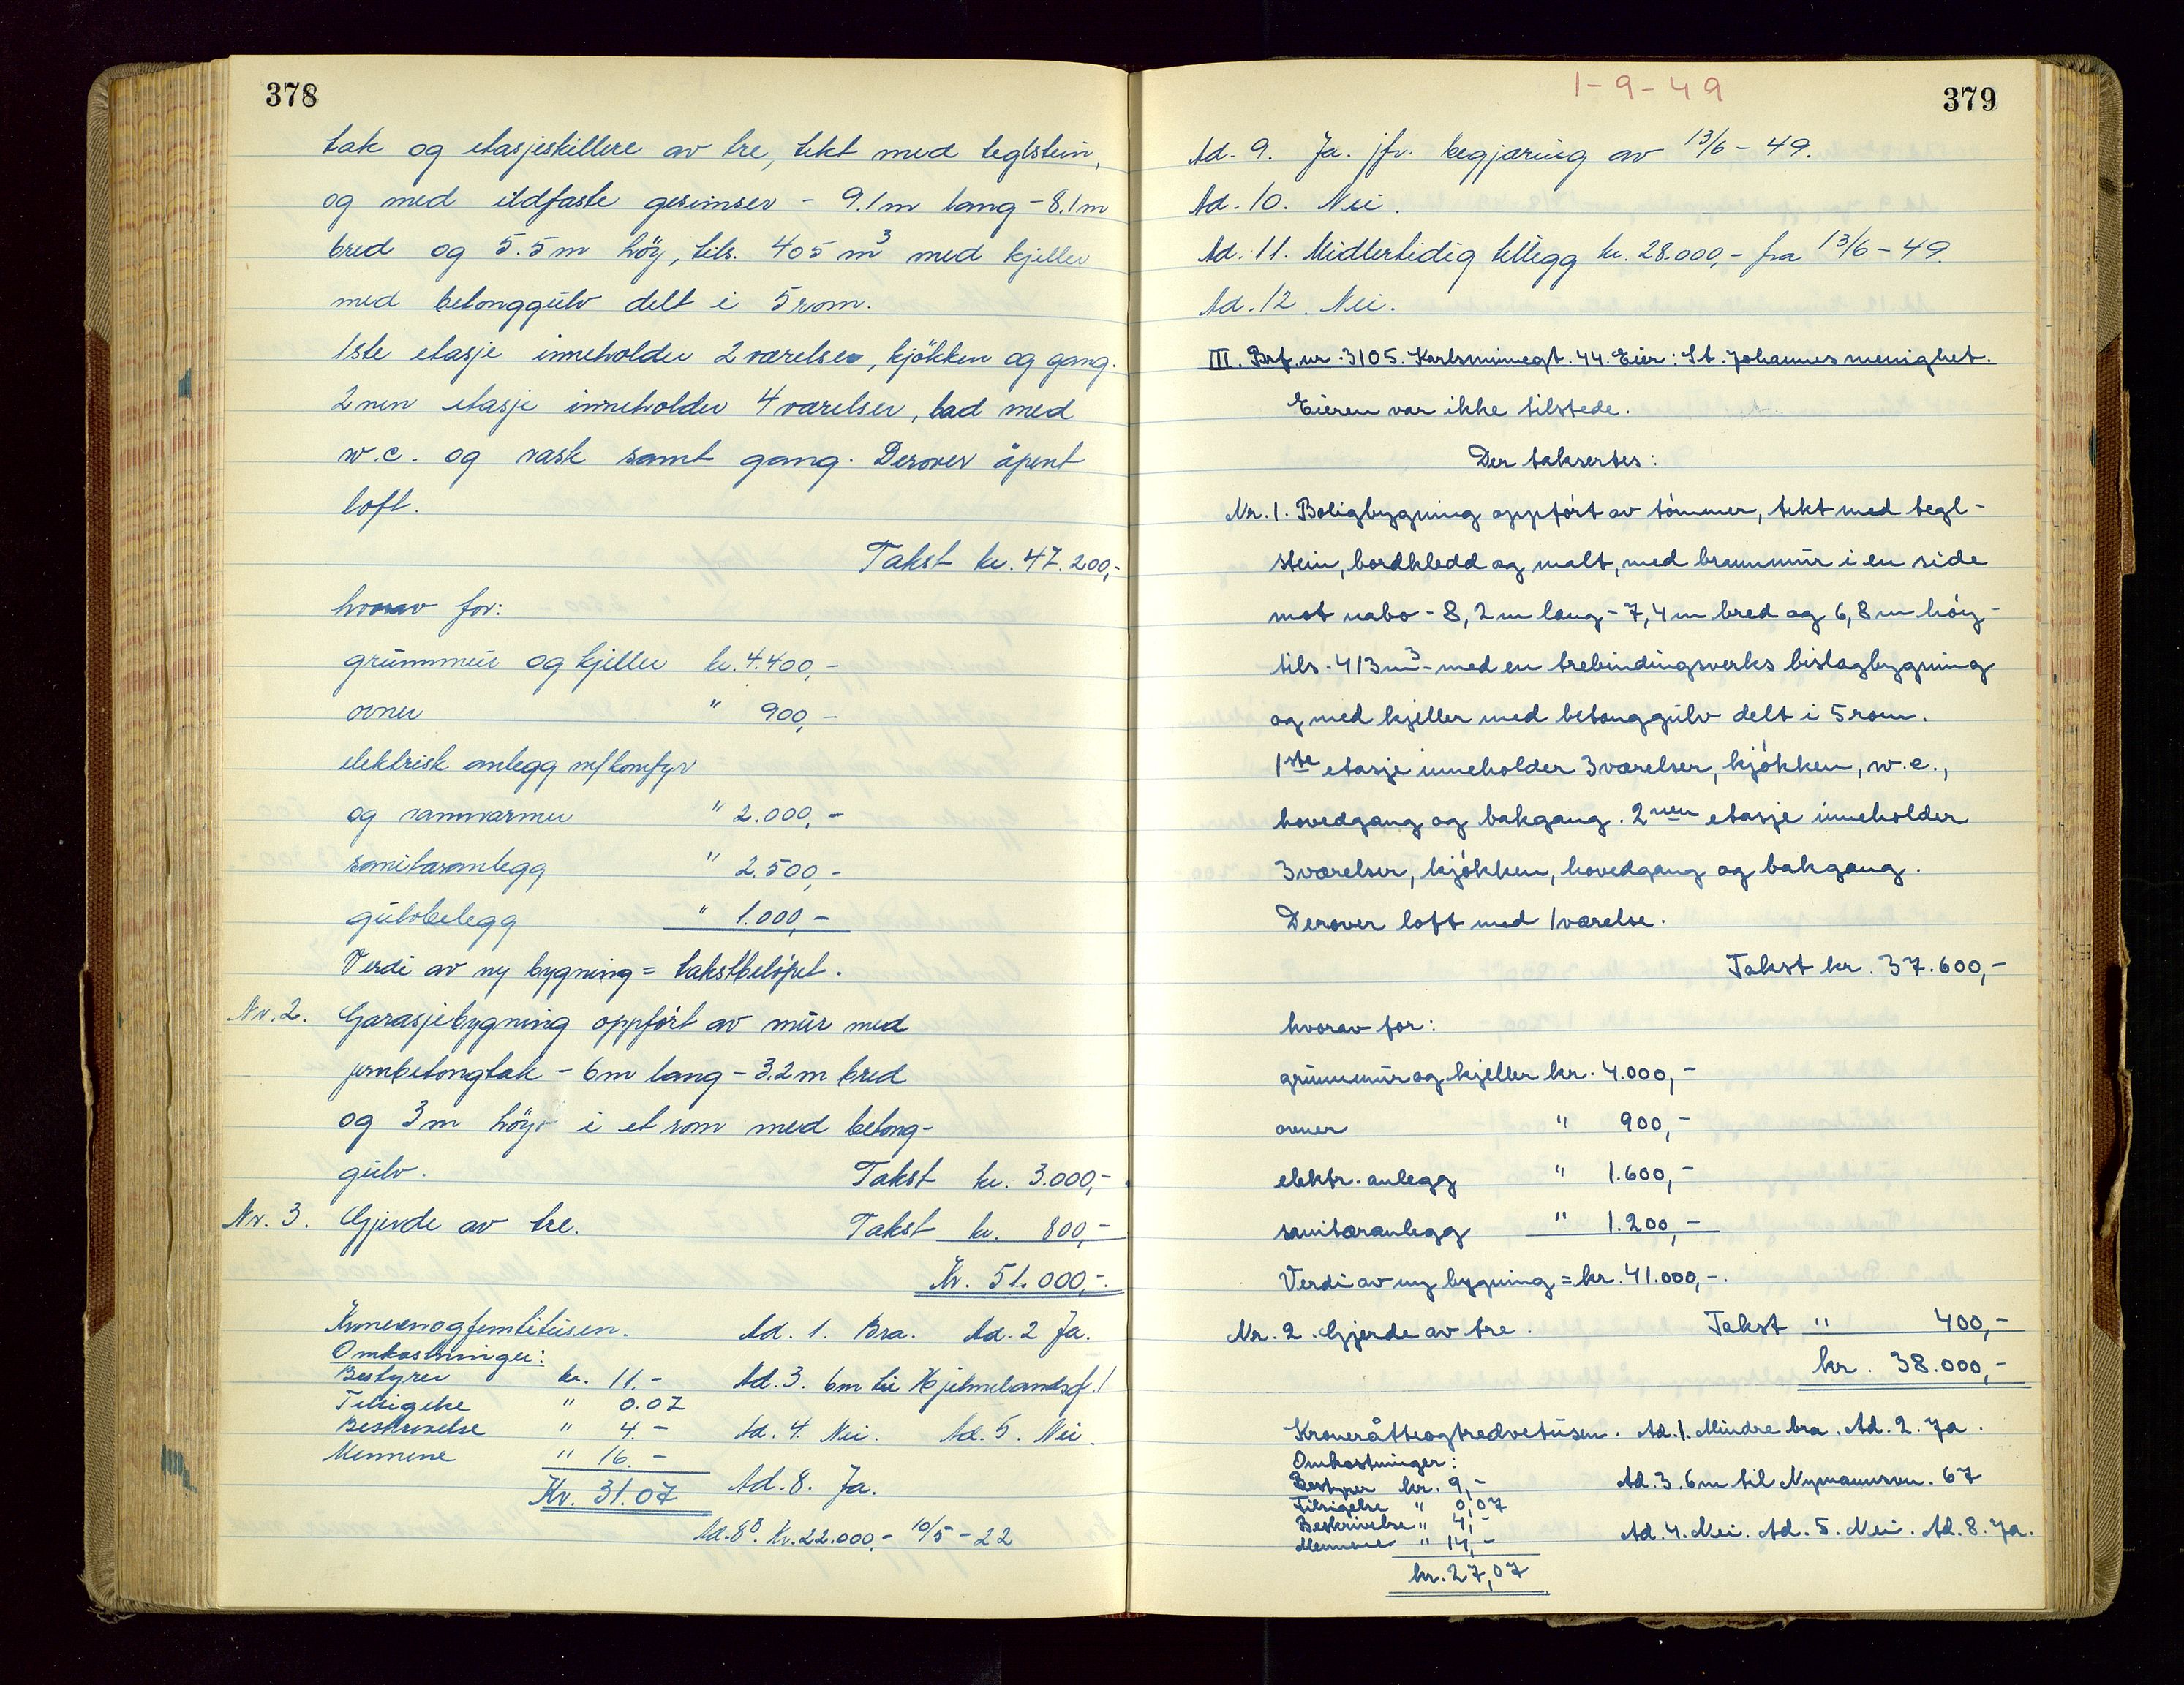 378
tak og etasjeskillere av tre, tekt med teglstein,
og med ildfaste gesimser - 9.1 m lang - 8.1 m
bred og 5.5 m höy, tils. 405 m³ med kjeller
med betonggulv delt i 5 rom.
1ste etasje inneholder 2 værelser, kjökken og gang.
2nen etasje inneholder 4 værelser, bad med
w.c. og vask samt gang. Derover åpent
loft.
Takst kr. 47.200,-
hvorav for:
grunnmur og kjeller kr. 4.400,-
ovner " 900,-
elektrisk anlegg m/komfyr
og vannvarmer " 2.000,-
sanitæranlegg " 2.500,-
gulvbelegg " 1.000,-
Verdi av ny bygning = takstbelöpet.
Nr. 2. Garasjebygning oppfört av mur med
jernbetongtak - 6 m lang - 3.2 m bred
og 3 m höy i et rom med betong-
gulv. Takst kr. 3.000,-
Nr. 3. Gjerde av tre. Takst kr. 800,-
Kr. 51.000,-.
Kronerenogfemtitusen. Ad. 1. Bra. Ad. 2 Ja.
Omkostninger:
Bestyrer kr. 11.- Ad. 3. 6m til Hjelmelandsg. 1
Tilsigelse " 0.07
Beskrivelse " 4.- Ad. 4. Nei. Ad. 5. Nei.
Mennene " 16.-
Kr. 31.07 Ad. 8. Ja.
Ad. 8ᴮ. Kr. 22.000,- 10/5 - 22
1-9-49
379
Ad. 9. Ja. jfr. begjæring av 13/6 - 49.
Ad. 10. Nei.
Ad. 11. Midlertidig tillegg kr. 28.000,- fra 13/6 - 49.
Ad. 12. Nei.
III. Brf. nr. 3105. Karlsminnegt. 44. Eier: St. Johannes menighet.
Eieren var ikke tilstede.
Der taksertes:
Nr. 1. Boligbygning oppfört av tömmer, tekt med tegl-
stein, bordkledd og malt, med brannmur i en side
mot nabo - 8,2 m lang - 7,4 m bred og 6,8 m höy -
tils. 413 m³ - med en trebindingsverks bislagbygning
og med kjeller med betonggulv delt i 5 rom.
1ste etasje inneholder 3 værelser, kjökken, w.c.,
hovedgang og bakgang. 2nen etasje inneholder
3 værelser, kjökken, hovedgang og bakgang.
Derover loft med 1 værelse.
Takst kr. 37.600,-
hvorav for:
grunnmur og kjeller kr. 4.000,-
ovner " 900,-
elektr. anlegg " 1.600,-
sanitæranlegg " 1.200,-
Verdi av ny bygning = kr. 41.000,-.
Nr. 2. Gjerde av tre. Takst " 400,-
kr. 38.000,-
Kroneråtteogtredvetusen. Ad. 1. Mindre bra. Ad. 2. Ja.
Omkostninger:
Bestyrer kr. 9,- Ad. 3. 6m til Nymannsvn. 67
Tilsigelse " 0,07
Beskrivelse " 4,- Ad. 4. Nei. Ad. 5. Nei. Ad. 8. Ja.
Mennene " 14,-
kr. 27,07